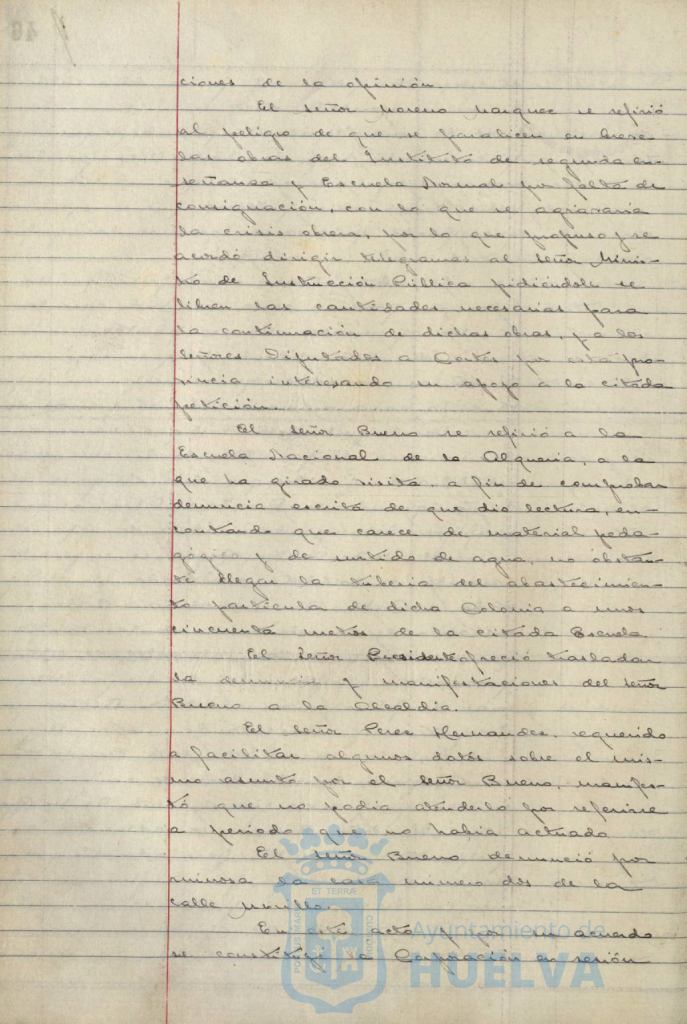 ciones de la opinión.
El señor Moreno Marquez se refirió
al peligro de que se paralicen en breve
las obras del Instituto de segunda en-
señanza y Escuela Normal por falta de
consignación, con lo que se agravaria
la crisis obrera, por lo que propuso y se
acordó dirigir telegramas al señor Minis-
tro de Instrucción Pública pidiéndole se
libren las cantidades necesarias para
la continuación de dichas obras, y a los
señores Diputados a Cortes por esta pro-
vincia interesando su apoyo a la citada
petición.
El señor Bueno se refirió a la
Escuela Nacional de la Alqueria, a la
que ha girado visita, a fin de comprobar
denuncia escrita de que dio lectura, en-
contrando que carece de material peda-
gógico y de surtido de agua, no obstan-
te llegar la tuberia del abastecimien-
to particular de dicha Colonia a unos
cincuenta metros de la citada Escuela
El Señor Presidente ofreció trasladar
la denuncia y manifestaciones del señor
Bueno a la Alcaldia.
El señor Perez Hernandez, requerido
a facilitar algunos datos sobre el mis-
mo asunto por el señor Bueno, manifes-
tó que no podia atenderlo por referirse
a periodo que no habia actuado
El señor Bueno denunció por
ruinosa la casa número dos de la
calle
En este acto y por se acuerdo
se constituyó la Corporación en sesión
46
Ayuntamiento de
HUELVA